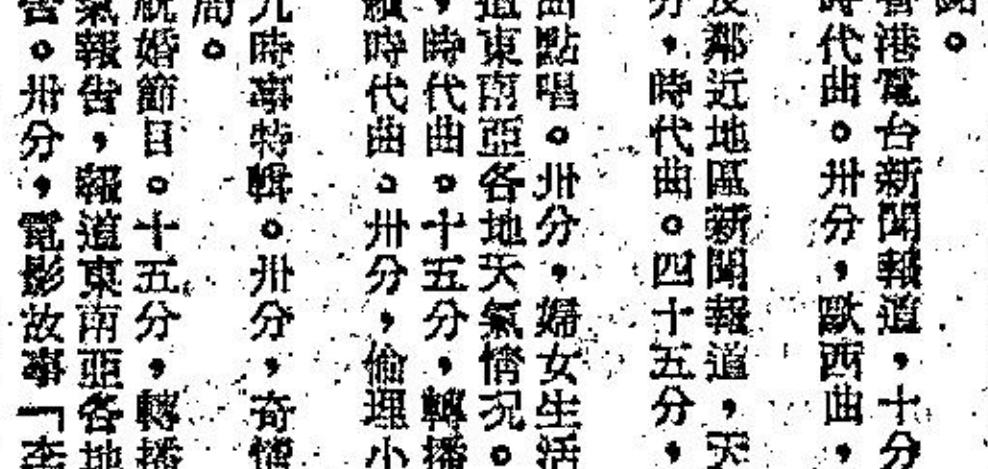 。
香港電台新聞報道，十分
時代曲。卅分，歐西曲，
鄰近地區新聞報道，天
分，時代曲。四十五分，
點唱。卅分，婦女生活
道東南亞各地天氣情况。
，時代曲。十五分，轉播
續時代曲。卅分，倫理小
九時事特輯。卅分，奇情
局。
婚節目。十五分，轉播
氣報告，報道東南亞各地
告。卅分，電影故事「李